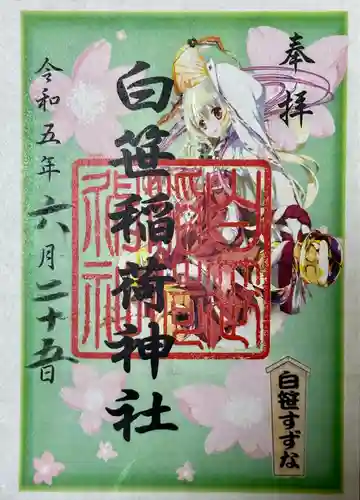 奉拝
白笹稲荷神社
令和五年六月二十五日
白笹すずな